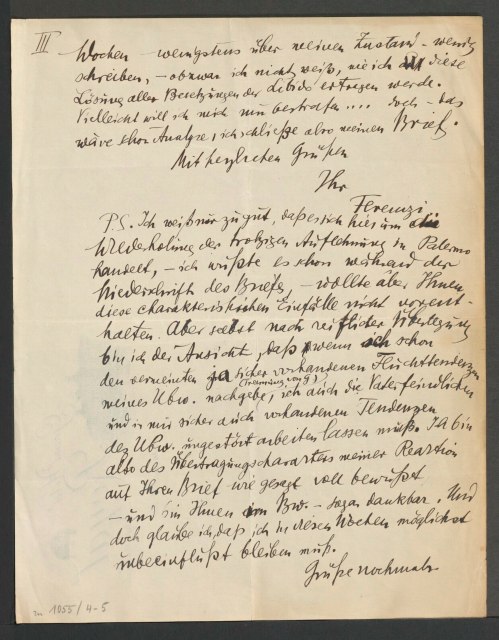 III
Wochen – wenigstens über meinen Zustand – wenig
schreiben, – obzwar ich nicht weiß, wie ich diese
Lösung aller Besetzungen der Libido ertragen werde.
Vielleicht will ich mich nur bestrafen .... doch – das
wäre schon Analyse; ich schließe also meinen Brief.
Mit herzlichen Grüßen
Ihr
Ferenczi
P.S. Ich weiß nur zu gut, daß es sich hier um die
Wiederholung der trotzigen Auflehnung in Palermo
handelt, – ich wußte es schon während der
Niederschrift des Briefes, – wollte aber Ihnen
diese charakteristischen Einfälle nicht vorent-
halten. Aber selbst nach reiflicher Überlegung
bin ich der Ansicht, daß, wenn ich schon
den vermeinten ja sicher vorhandenen Fluchttendenzen
(Trennung von G)
meines Ubw. nachgebe, ich auch die Vaterfeindlichen
und in mir sicher auch vorhandenen Tendenzen
des Ubw. ungestört arbeiten lassen muß. Ich bin
also des Übertragungscharakters meiner Reaktion
auf Ihren Brief wie gesagt voll bewußt
– und bin Ihnen im Bw. – sogar dankbar. Und
doch glaube ich, daß ich in diesen Wochen möglichst
unbeeinflußt bleiben muß.
Grüße nochmals
1055/4-5